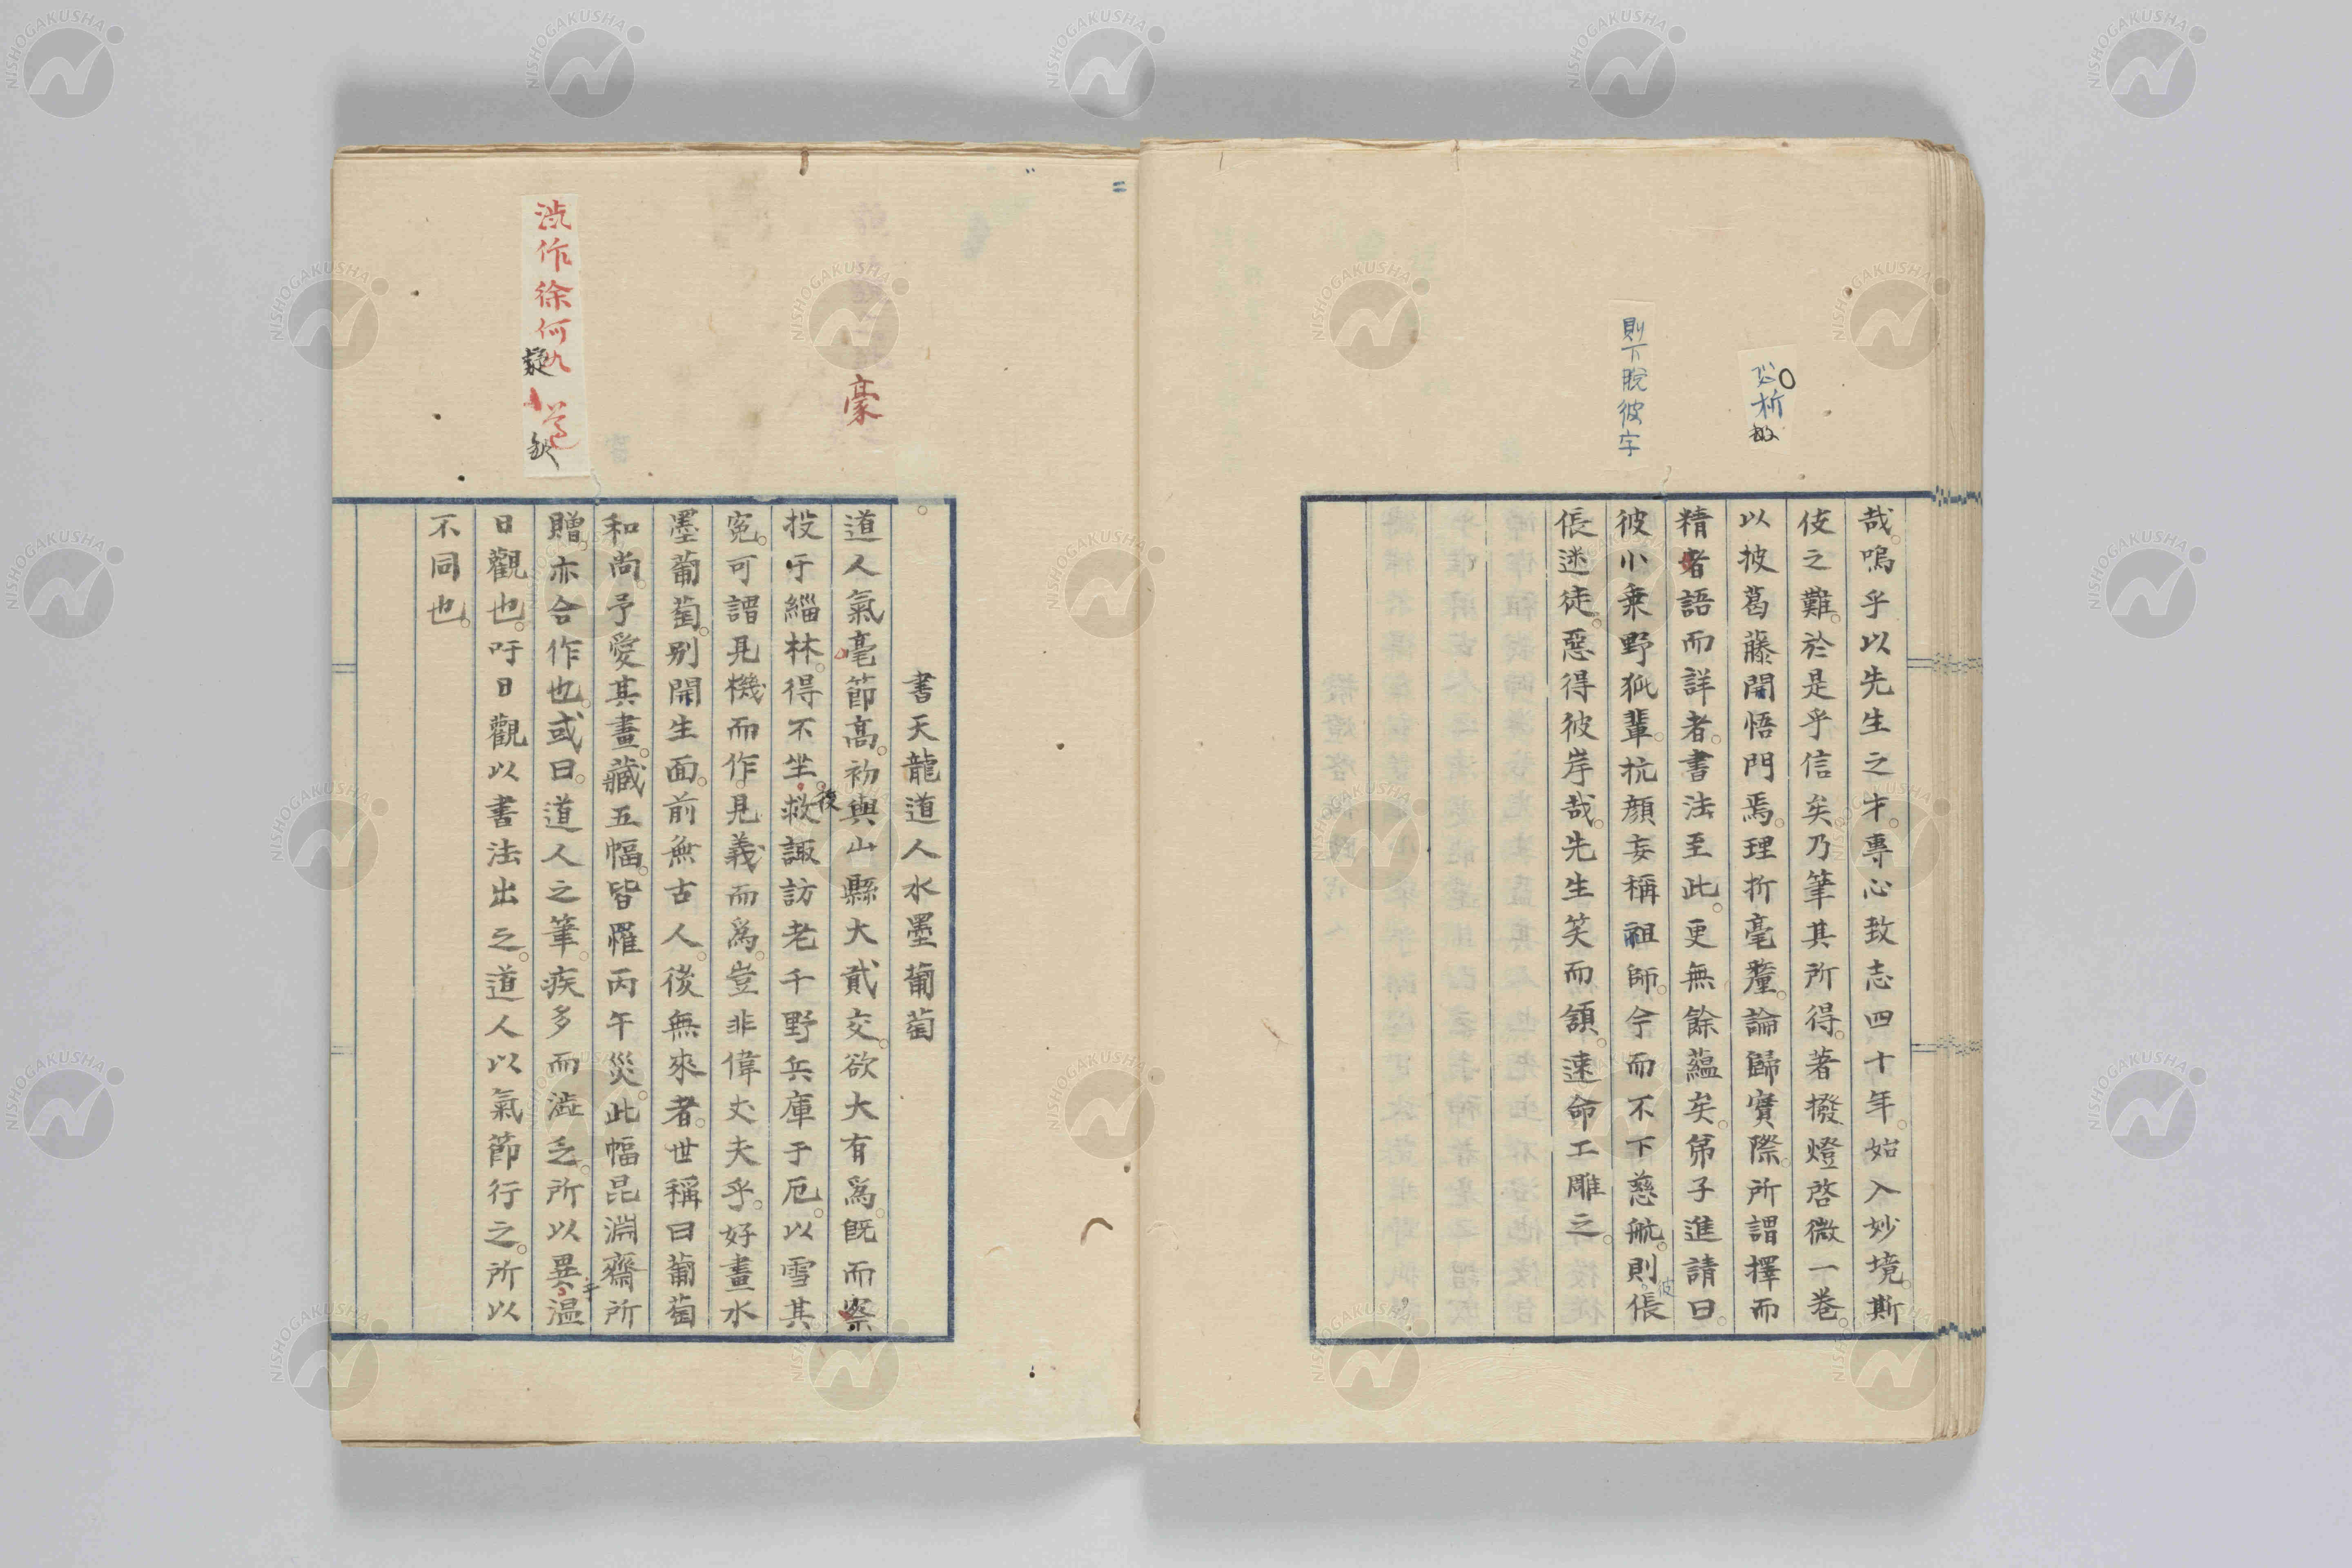 哉。嗚乎以先生之才。專心致志四十年。始入妙境。斯
伎之難。於是乎信矣乃筆其所得。著撥燈啓微一卷。
以披葛藤開悟門焉。理折毫釐。論歸實際。所謂擇而
精者語而詳者。書法至此。更無餘蘊矣。弟子進請曰。
彼小乗野狐輩。抗顔妄稱祖師。今而不下慈航。則倀
彼
倀迷徒。惡得彼岸哉。先生笑而頷。遠命工雕之。
必析
則下脫彼字
書天龍道人水墨葡萄
道人氣毫節高。初與山縣大貳交。欲大有爲。既而察
投于緇林。得不坐。救諏訪老千野兵庫于厄。以雪其
後
寃。可謂見機而作。見義而爲。豈非偉丈夫乎。好畫水
墨葡萄。別開生面。前無古人。後無來者。世稱曰葡萄
和尚。予愛其畫。藏五幅。皆罹丙午災。此幅昆淵齋所
贈。亦合作也。或曰。道人之筆。疾多而澁乏。所以異温
日觀也。吁日觀以書法出之。道人以氣節行之。所以
不同也。
豪
渋作徐何
NISHOGAKUSHA